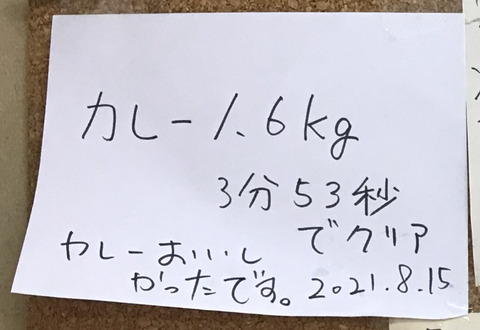 カレー1.6kg
3分53秒
でクリア
カレーおいし
かったです。2021.8.15